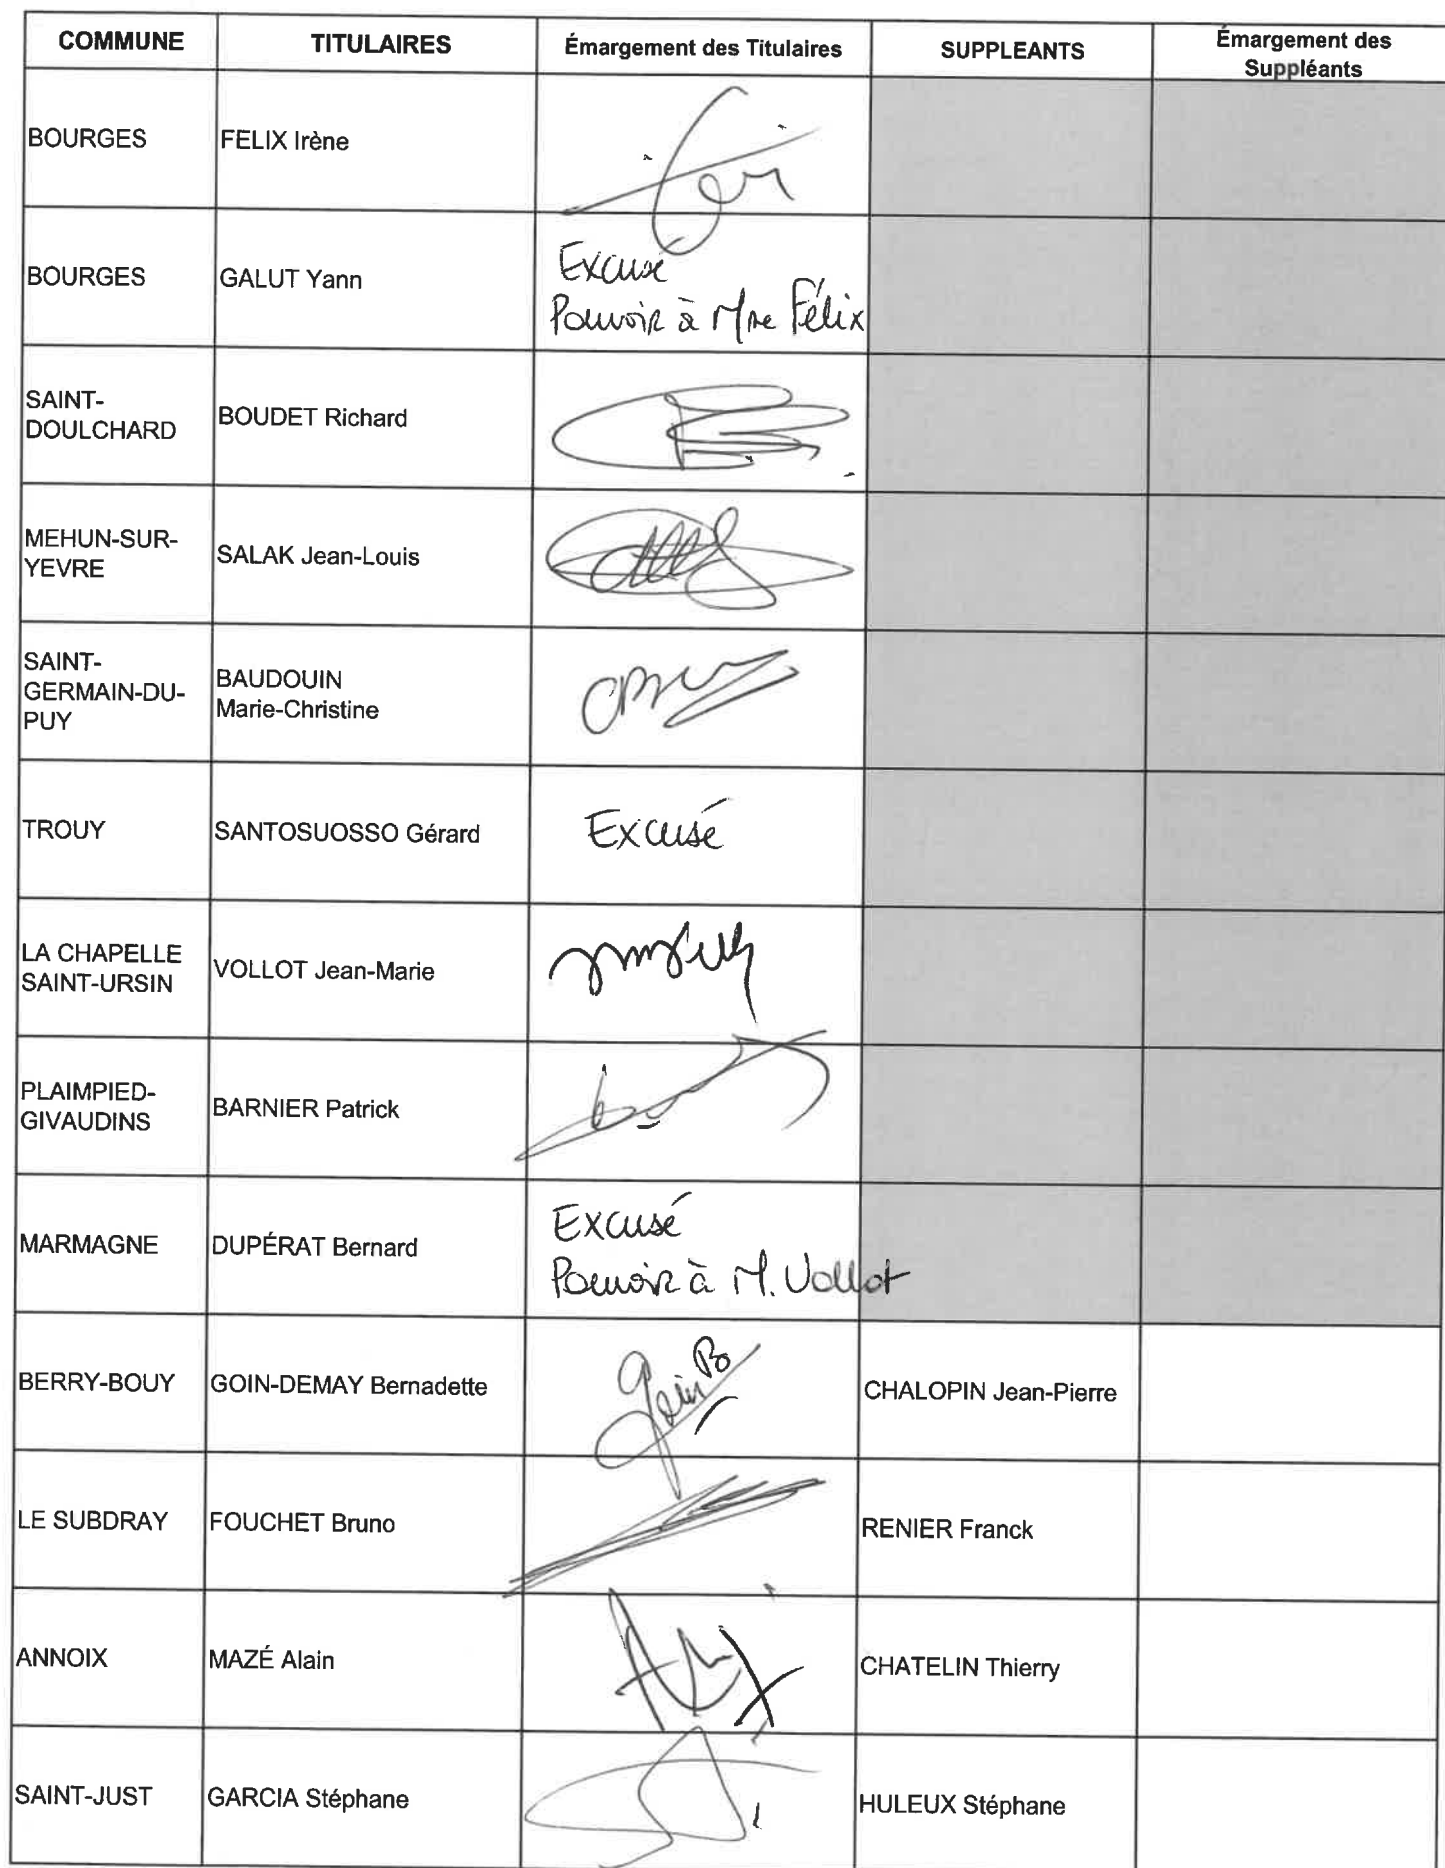 COMMUNE TITULAIRES Émargement des Titulaires SUPPLEANTS Émargement des
Suppléants
BOURGES FELIX Irène
BOURGES GALUT Yann Excusé
Pouvoir à Mme Félix
SAINT-
DOULCHARD BOUDET Richard
MEHUN-SUR-
YEVRE SALAK Jean-Louis
SAINT-
GERMAIN-DU-
PUY BAUDOUIN
Marie-Christine
TROUY SANTOSUOSSO Gérard Excusé
LA CHAPELLE
SAINT-URSIN VOLLOT Jean-Marie
PLAIMPIED-
GIVAUDINS BARNIER Patrick
MARMAGNE DUPÉRAT Bernard Excusé
Pouvoir à M. Vollot
BERRY-BOUY GOIN-DEMAY Bernadette Goin B CHALOPIN Jean-Pierre
LE SUBDRAY FOUCHET Bruno RENIER Franck
ANNOIX MAZÉ Alain CHATELIN Thierry
SAINT-JUST GARCIA Stéphane HULEUX Stéphane